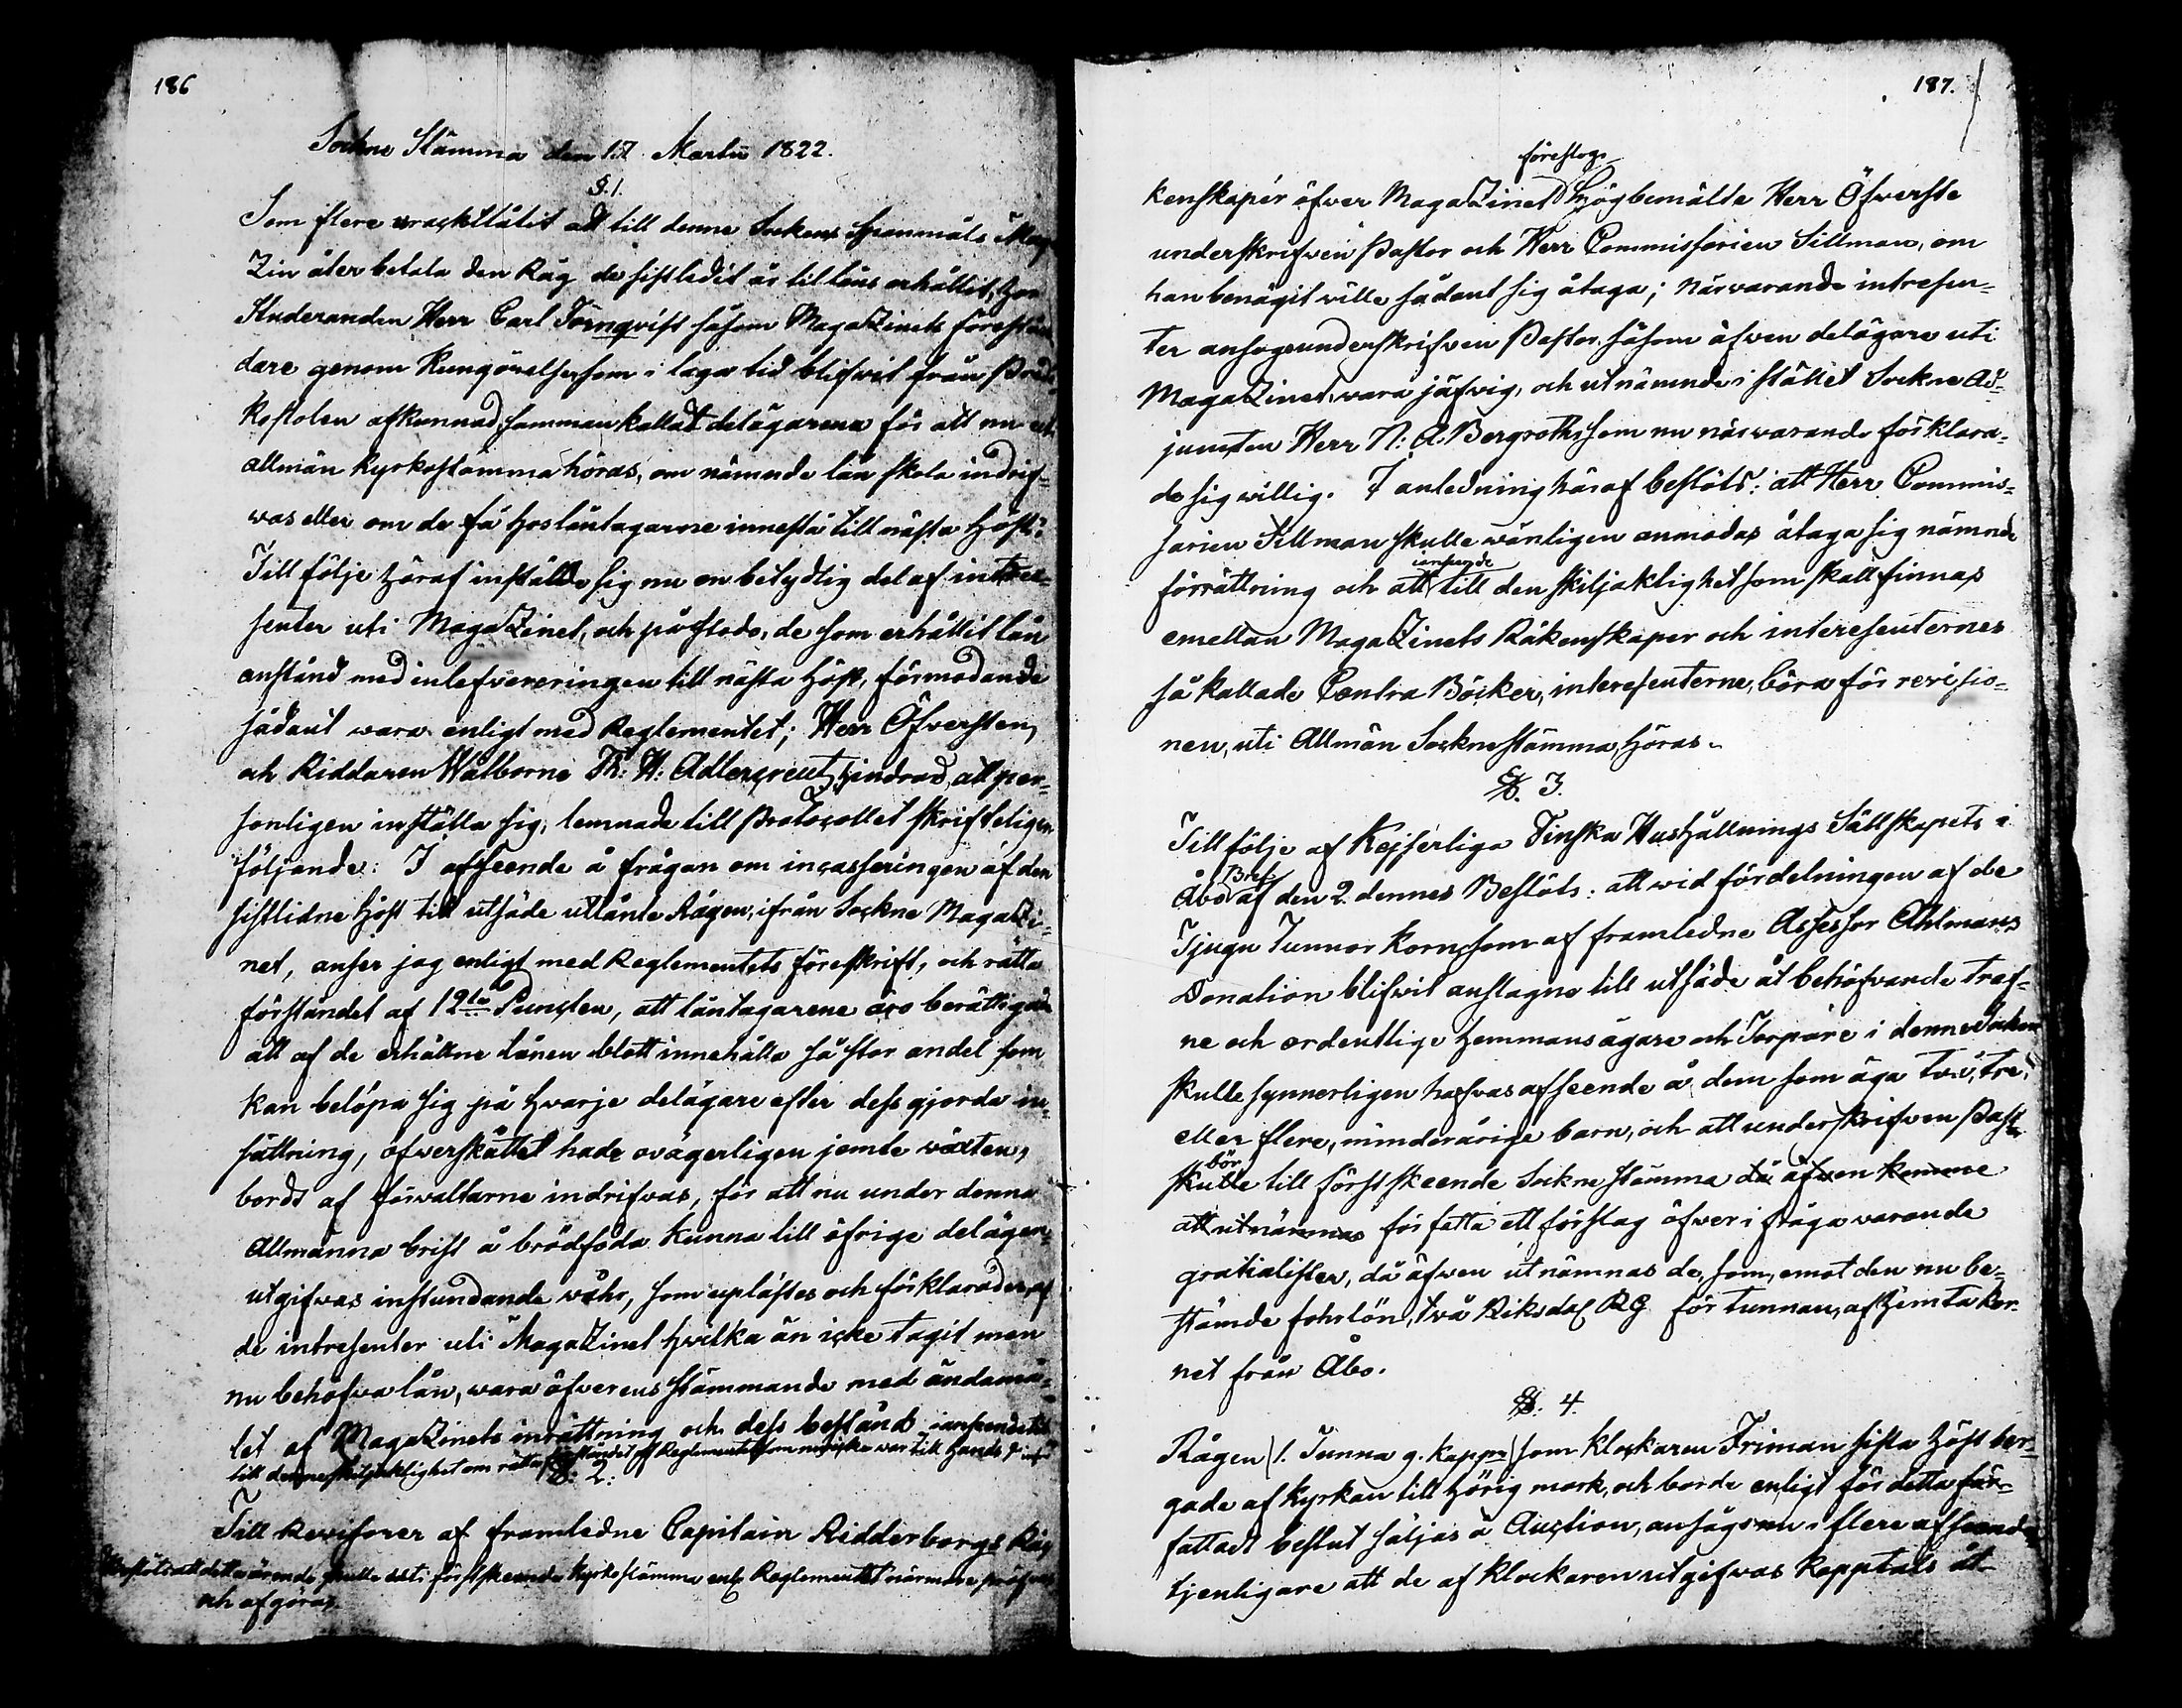 186
Sockne Stämma den 17 Martii 1822.
§. 1.
Som flere uracktlåtit att till denne Sockens Spanmåls Maga
Zin återbetala den Råg de sistledit år till låns erhållit, har
Studeranden Herr Carl Törnqvist såsom MagaZinets förestån
dare genom Kungörelse som i laga tid blifwit från Predi
kostolen afkunnad, sammankallat delägarena för att nu uti
allmän Kyrkostämma höras, om nämnde lån skola indrif-
was eller om de få hos låntagarne innestå till nästa Höst.
Till följe häraf inställde sig nu en betydlig del af intres-
senter uti MagaZinet, och påstodo, de som erhållit lån
anstånd med inlefvereringen till nästa Höst, förmodande
sådant wara enligt med Reglementet; Herr Öfversten
och Riddaren Wälborne Th: H: Adlercreutz hindrad, att per-
sonligen inställa sig, lemnade till Protocollet skrifteligen
följande: I afseende å frågan om incasseringen af den
sistlidne Höst till utsäde utlånte Rågen, ifrån Sockne MagaZi-
net, anser jag enligt med Reglementets föreskrift, och rätta
förståndet af 12te Puncten, att låntagarene äro berättigade
att af de erhållne lånen blott innehålla så stor andel som
kan belöpa sig på hwarje delägare efter dess gjorda in-
sättning, öfwerskottet hade ovägerligen jemte växten,
bordt af förwaltarne indrifvas, för att nu under denna
Allmänna brist å brödföda kunna till öfrige delägare
utgifwas instundande wåhr, som uplästes och förklarades af
de intressenter uti MagaZinet hwilka än icke tagit men
nu behöfwa lån, wara öfverensstämmande med ändamå-
let af MagaZinets inrättning och dess bestånd; i anseende
till denne skiljaktighet om rätta förståndet af Reglementet som nu icke war till hands
§. 2.
Till Revisorer af framledne Capitain Ridderborgs Rä-
Beslöts att detta ärende skulle uti först skeende Kyrkostämma enl. Reglementet närmare pröfvas
och afgöras
187.
föreslogs
kenskaper öfver MagaZinet Högbemälte Herr Öfwerste
underskrifwen Pastor och Herr Commissarien Sillman, om
han benägit wille sådant sig åtaga; närwarande intressen-
ter ansågo underskrifven Pastor såsom äfven delägare uti
MagaZinet, wara jäfwig, och utnämnde i stället Sockne Ad-
juncten Herr N: A: Bergroth, som nu närwarande förklara-
de sig willig. I anledning häraf beslöts: att Herr Commis-
sarien Sillman skulle wänligen anmodas åtaga sig nämnde
i anseende
förrättning och att till den skiljaktighet som skall finnas
emellan MagaZinets Räkenskaper och interessenternes
så kallade Contra Böcker, interessenterne, böra för revisio-
nen, uti Allmän Socknestämma, höras.
§. 3.
Till följe af Kejserliga Finska Hushållnings Sällskapets i
Bref
Åbo af den 2. dennes Beslöts: att wid fördelningen af de
Tjugu Tunnor Korn, som af framledne Assessor Ahlmans
Donation blifwit anslagne till utsäde åt behöfvande traf-
ne och ordentlige Hemmansägare och Torpare i denne Socken
skulle synnerligen hafvas afseende å dem som äga två, tre,
eller flere, minderårige barn, och att underskrifven Pastor
bör
skulle till först skeende Sockne Stämma då äfwen komme
att utnämnas författa ett förslag öfwer i fråga warande
gratialister, då äfwen utnämnas de, som, emot den nu be-
stämde forlön, två Riksdal. RG för tunnan, afhemta kor-
net från Åbo.
§. 4.
Rågen (1. Tunna 9. kappr) som klockaren Friman sista Höst ber-
gade af kyrkan tillhörig mark, och borde enligt för detta för-
fattadt beslut säljas å Auction, ansågs nu i flere afseende
tjenligare att de af klockaren utgifvas kapptals åt